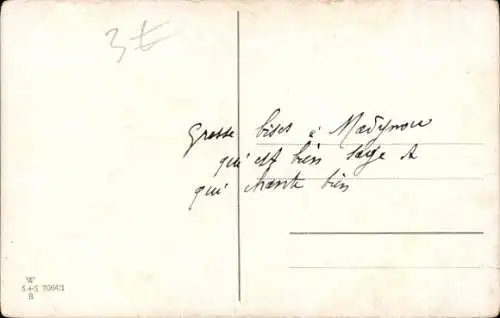 3
Grosse bises à Madynou
qui est bien sage &
qui chante bien
W
S+S 7064/1
B